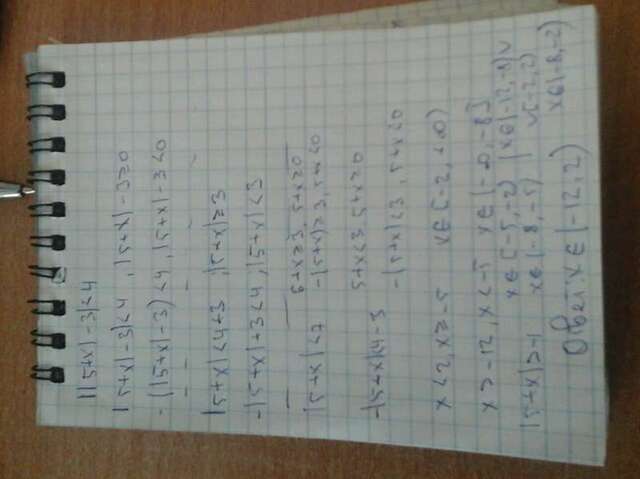 ||5+x|-3|<4
|5+x|-3|<4 , |5+x|-3≥0
-(|5+x|-3)<4 , |5+x|-3<0
|5+x|<4+3 , |5+x|≥3
-|5+x|+3<4 , |5+x|<3
5+x≥3, 5+x≥0
|5+x|<7 -(5+x)≥3, 5+x<0
5+x<3 5+x≥0
-|5+x|<4-3
-(5+x)<3, 5+x<0
x<2, x≥-5 x∈[-2, +∞)
x>-12, x<-5 x∈(-∞, -8]
x∈[-5, -2) x∈(-12, -8]∪
|5+x|>-1 x∈(-8, -5) ∪[-2, 2)
x∈(-8, -2)
Ответ: x∈(-12, 2)